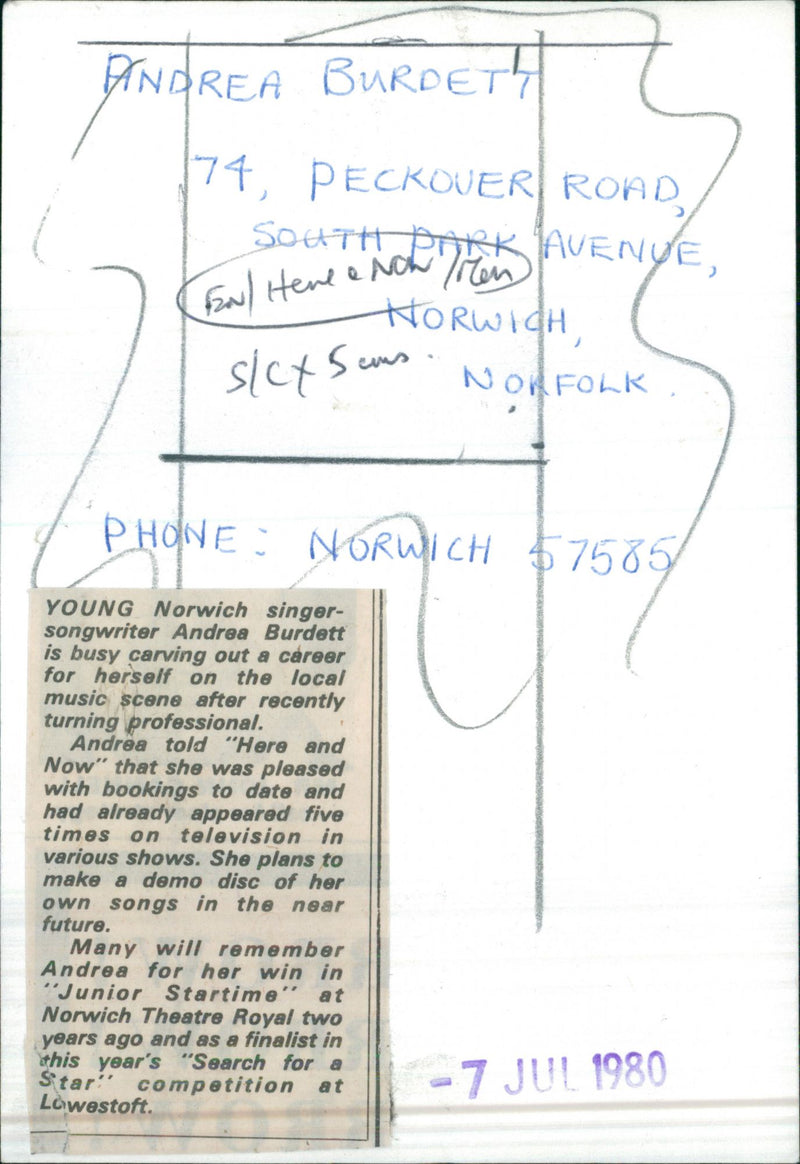 ANDREA BURDETT
74, PECKOVER ROAD,
SOUTH PARK AVENUE,
EN/ Here & Now / Mon
NORWICH,
S/C x 5 cms.
NORFOLK.
PHONE: NORWICH 57585
YOUNG Norwich singer-
songwriter Andrea Burdett
is busy carving out a career
for herself on the local
music scene after recently
turning professional.
Andrea told "Here and
Now" that she was pleased
with bookings to date and
had already appeared five
times on television in
various shows. She plans to
make a demo disc of her
own songs in the near
future.
Many will remember
Andrea for her win in
"Junior Startime" at
Norwich Theatre Royal two
years ago and as a finalist in
this year's "Search for a
Star" competition at
Lowestoft.
-7 JUL 1980